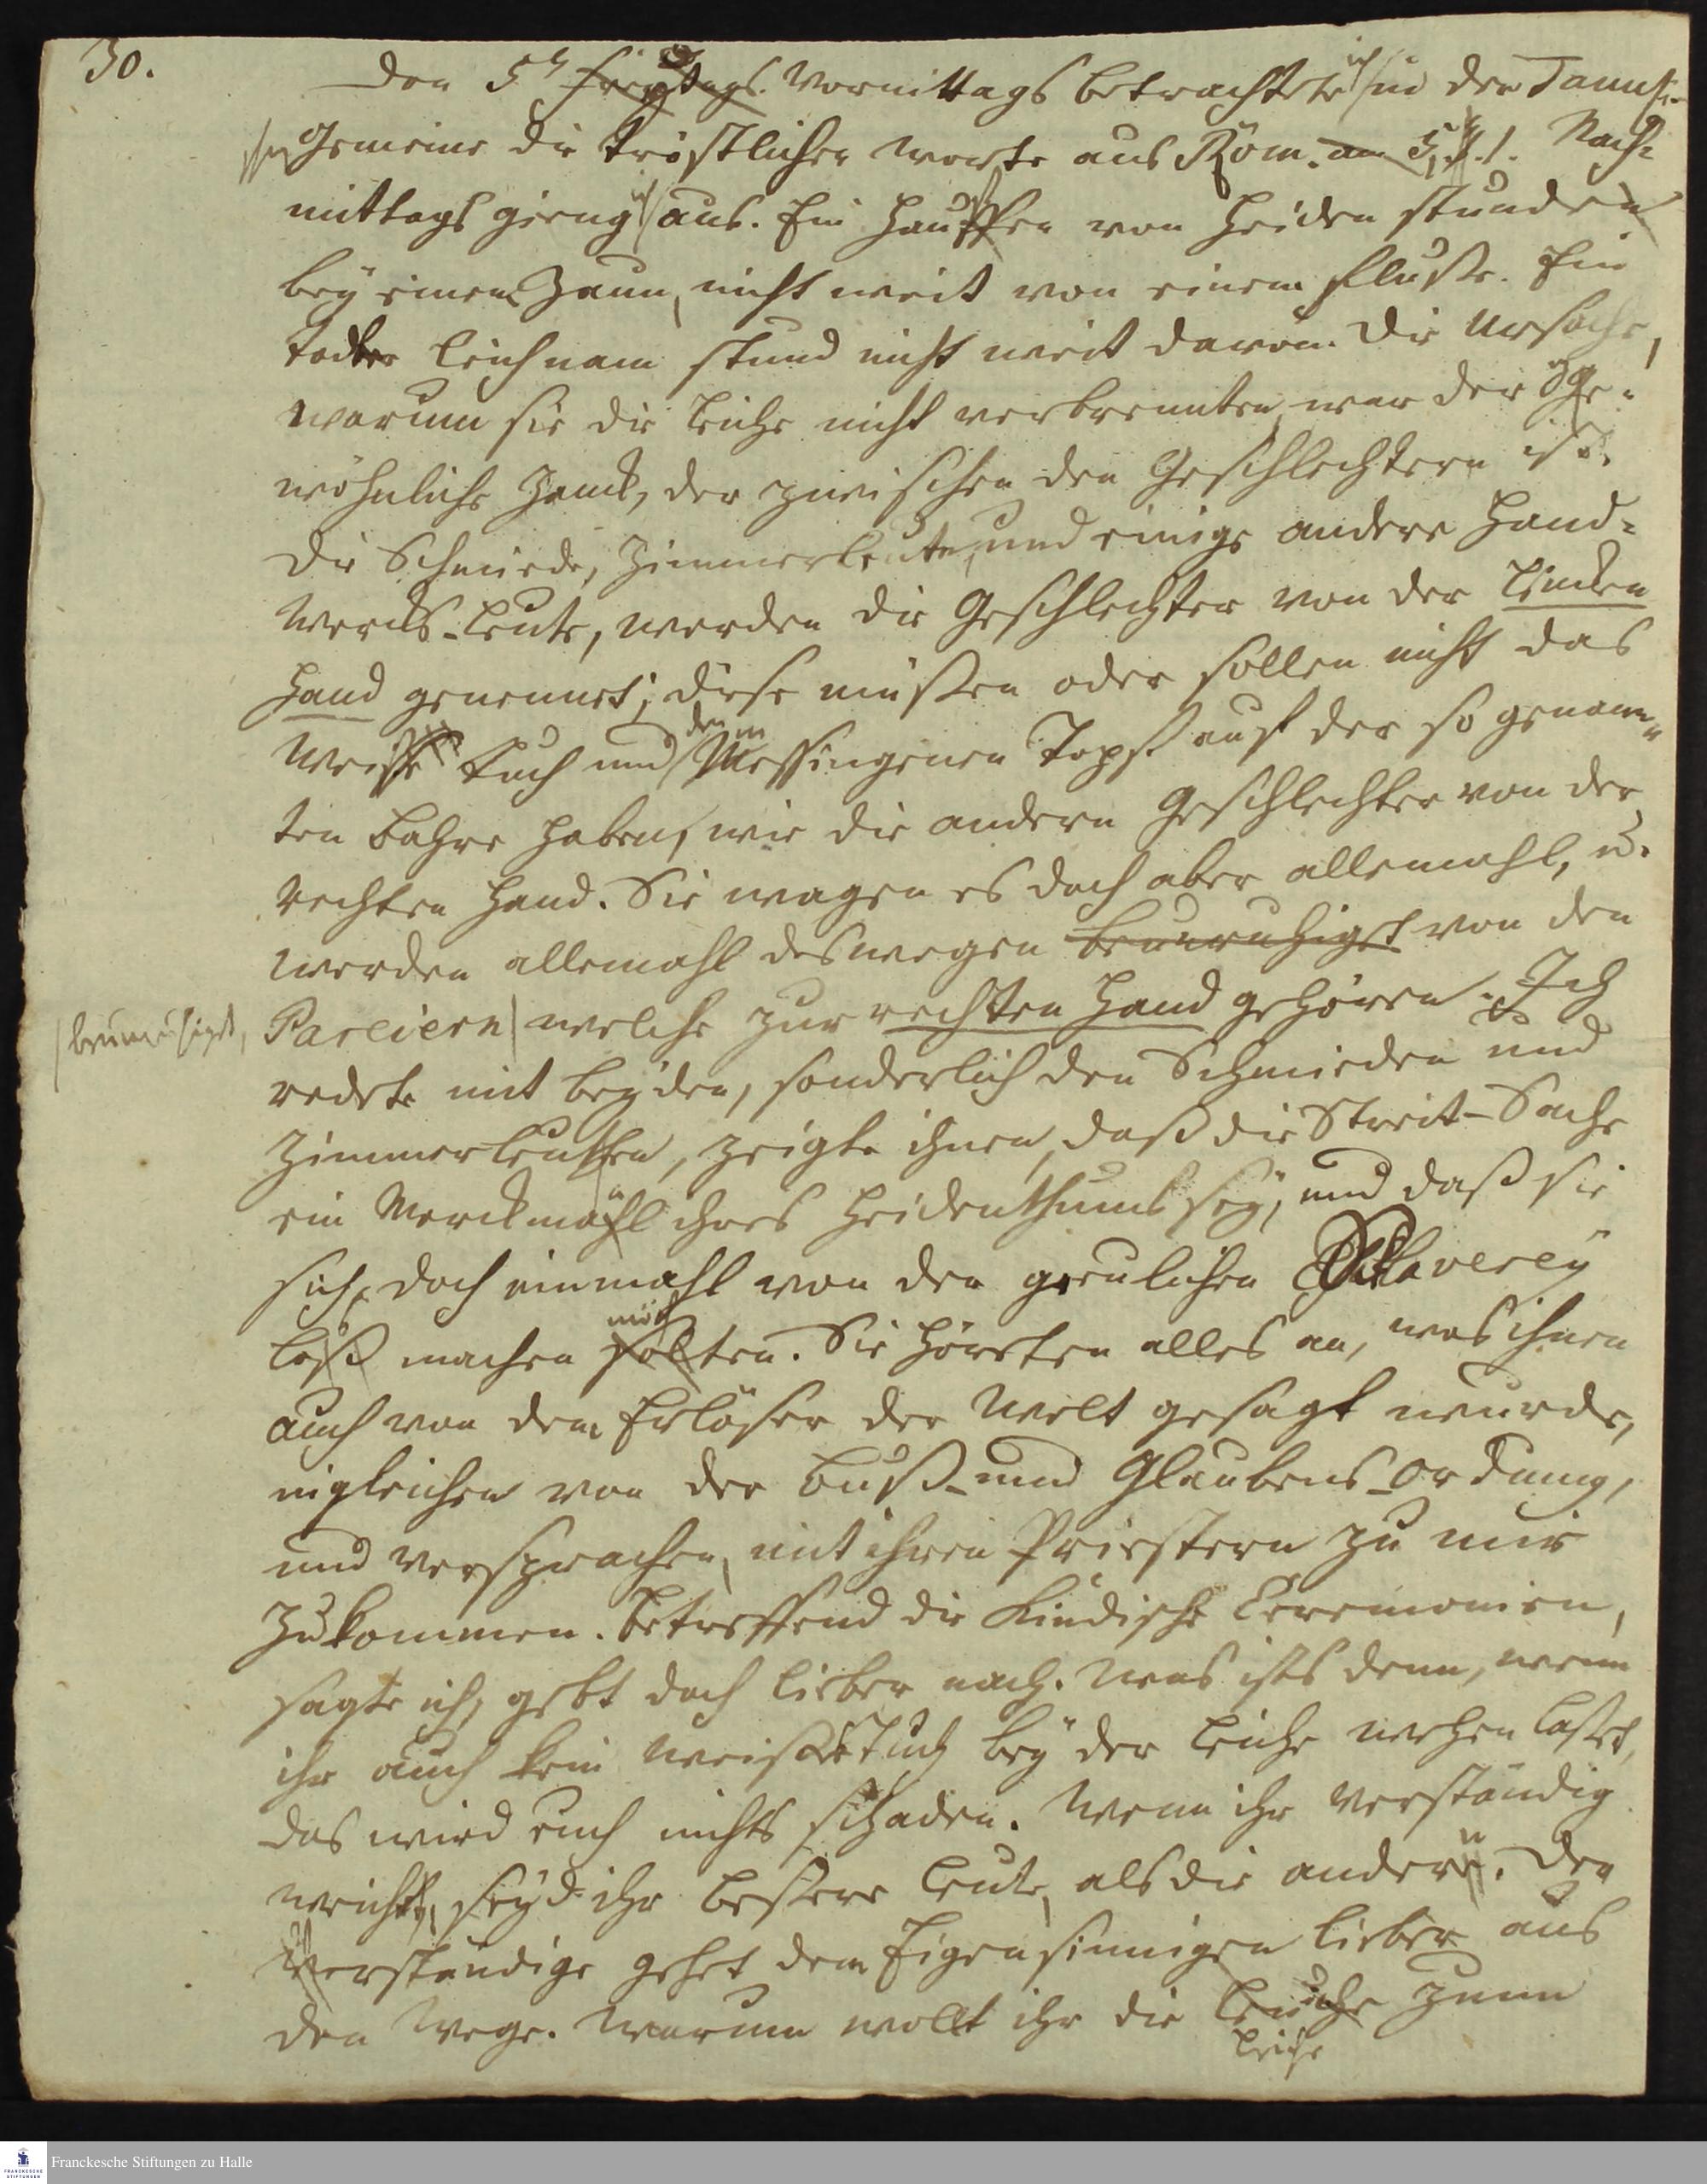 30.
Den 5t. Freytags. Vormittags betrachtete ich in der Tamuli-
schen Gemeine die tröstlichen worte aus Röm. am 5, V. 1. Nach-
mittags gieng ich aus. Ein Hauffen von Heiden stunden
bey einem Zaun, nicht weit von einem Fluße. Ein
todter Leichnam stund nicht weit davon. Die Ursache,
warum sie die Leiche nicht verbrennten, war der Ge-
wöhnliche Zanck, der zwischen den Geschlechtern ist.
Die Schmiede, Zimmerleute, und einige andere Hand-
wercks-Leute, werden die Geschlechter von der Lincken
Hand genennet; diese müßen oder sollen nicht das
Weisse Tuch und den Messingenen Topf auf der so genann-
ten Bahre haben, wie die andern Geschlechter von der
rechten Hand. Sie wagen es doch aber allemahl, u.
werden allemahl deswegen beunruhiget von den
beunruhiget,
Pareiern welche zur rechten Hand gehören. Ich
redete mit beyden, sonderlich den Schmieden und
Zimmerleuthen, zeigte ihnen, daß die Streit-Sache
ein Merckmahl ihres Heidenthums sey, und daß sie
sich doch einmahl von der greulichen Sklaverey
loß machen solten. Sie höreten alles an, was ihnen
möch
auch von dem Erlöser der Welt gesagt wurde,
ingleichen von der Buß- und Glaubens-Ordnung,
und versprachen, mit ihren Priestern zu mir
zu kommen. Betreffend die Kindische Ceremonien,
sagte ich, gebt doch lieber nach. Was ists denn, wenn
ihr auch kein weisses Tuch bey der Leiche wehen laßet,
das wird euch nichts schaden. Wenn ihr verständig
weichet, seyd ihr bessere Leute, als die andern. Der
Verständige gehet dem Eigensinnigen lieber aus
den Wege. Warum wollt ihr die Leuche zum
Leiche
Franckesche Stiftungen zu Halle